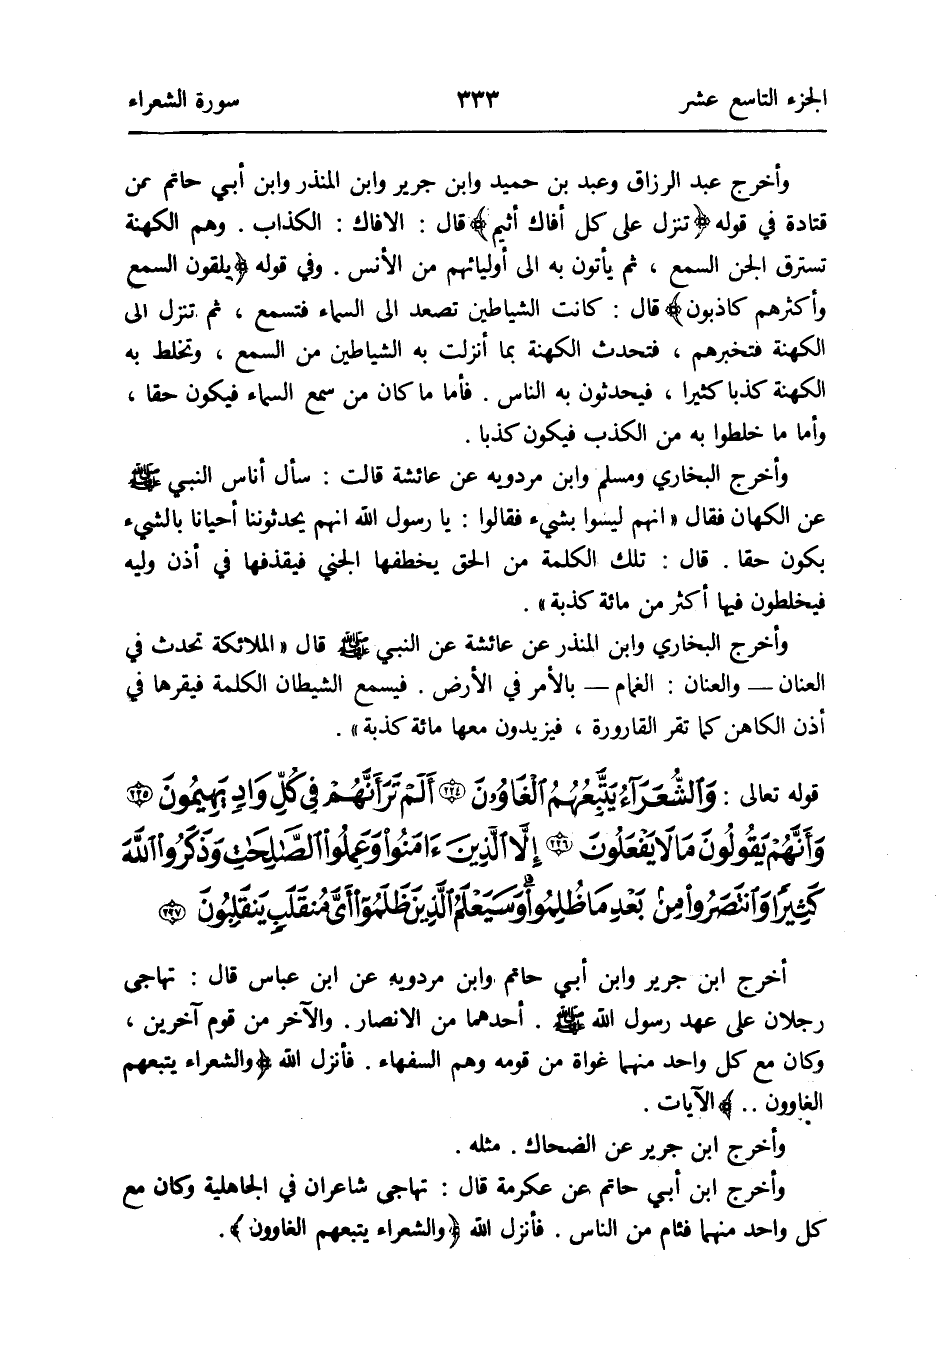 الجزء التاسع عشر ٣٣٣ سورة الشعراء
وأخرج عبد الرزاق وعبد بن حميد وابن جرير وابن المنذر وابن أبي حاتم عن
قتادة في قوله ﴿تنزل على كل أفاك أثيم﴾ قال : الافاك : الكذاب . وهم الكهنة
تسترق الجن السمع ، ثم يأتون به الى أوليائهم من الأنس . وفي قوله ﴿يلقون السمع
وأكثرهم كاذبون﴾ قال : كانت الشياطين تصعد الى السماء فتسمع ، ثم تنزل الى
الكهنة فتخبرهم ، فتحدث الكهنة بما أنزلت به الشياطين من السمع ، وتخلط به
الكهنة كذبا كثيرا ، فيحدثون به الناس . فأما ما كان من سمع السماء فيكون حقا ،
وأما ما خلطوا به من الكذب فيكون كذبا .
وأخرج البخاري ومسلم وابن مردويه عن عائشة قالت : سأل أناس النبي ﷺ
عن الكهان فقال « انهم ليسوا بشيء فقالوا : يا رسول الله انهم يحدثوننا أحيانا بالشيء
يكون حقا . قال : تلك الكلمة من الحق يخطفها الجني فيقذفها في أذن وليه
فيخلطون فيها أكثر من مائة كذبة » .
وأخرج البخاري وابن المنذر عن عائشة عن النبي ﷺ قال « الملائكة تحدث في
العنان — والعنان : الغمام — بالأمر في الأرض . فيسمع الشيطان الكلمة فيقرها في
أذن الكاهن كما تقر القارورة ، فيزيدون معها مائة كذبة » .
قوله تعالى : وَٱلشُّعَرَآءُ يَتَّبِعُهُمُ ٱلۡغَاوُۥنَ ﴿٢٢٤﴾ أَلَمۡ تَرَ أَنَّهُمۡ فِي كُلِّ وَادٖ يَهِيمُونَ ﴿٢٢٥﴾
وَأَنَّهُمۡ يَقُولُونَ مَا لَا يَفۡعَلُونَ ﴿٢٢٦﴾ إِلَّا ٱلَّذِينَ ءَامَنُواْ وَعَمِلُواْ ٱلصَّٰلِحَٰتِ وَذَكَرُواْ ٱللَّهَ
كَثِيرٗا وَٱنتَصَرُواْ مِنۢ بَعۡدِ مَا ظُلِمُواْۗ وَسَيَعۡلَمُ ٱلَّذِينَ ظَلَمُوٓاْ أَيَّ مُنقَلَبٖ يَنقَلِبُونَ ﴿٢٢٧﴾
أخرج ابن جرير وابن أبي حاتم وابن مردويه عن ابن عباس قال : تهاجى
رجلان على عهد رسول الله ﷺ . أحدهما من الانصار . والآخر من قوم آخرين ،
وكان مع كل واحد منهما غواة من قومه وهم السفهاء . فأنزل الله ﴿والشعراء يتبعهم
الغاوون .. ﴾ الآيات .
وأخرج ابن جرير عن الضحاك . مثله .
وأخرج ابن أبي حاتم عن عكرمة قال : تهاجى شاعران في الجاهلية وكان مع
كل واحد منهما فئام من الناس . فأنزل الله ﴿والشعراء يتبعهم الغاوون﴾ .